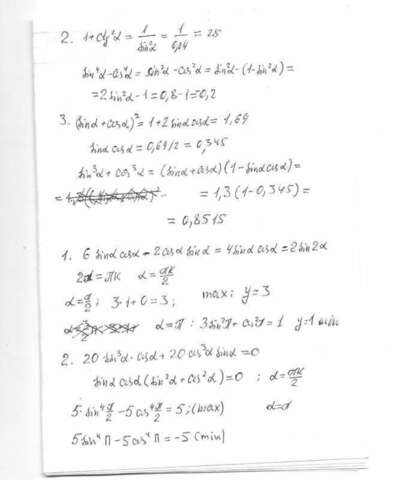 2. 1+ctg²α = 1/sin²α = 1/0,04 = 25
sin⁴α-cos⁴α = sin²α-cos²α = sin²α-(1-sin²α) =
=2sin²α-1=0,8-1=0,2
3. (sinα+cosα)²=1+2sinαcosα= 1,69
sinαcosα=0,69/2=0,345
sin³α+cos³α=(sinα+cosα)(1-sinαcosα)=
= = 1,3(1-0,345)=
= 0,8515
1. 6 sinαcosα-2cosαsinα=4sinαcosα=2sin2α
2α=πк α=πк/2
α=π/2; 3·1+0=3; max; y=3
α=π: 3sin²π+cos²π=1 y=1 min
2. 20 sin³α·cosα+20cos³αsinα=0
sinαcosα(sin²α+cos²α)=0; α=πк/2
5·sin⁴π/2-5cos⁴π/2=5;(max)
5sin⁴π-5cos⁴π=-5(min)